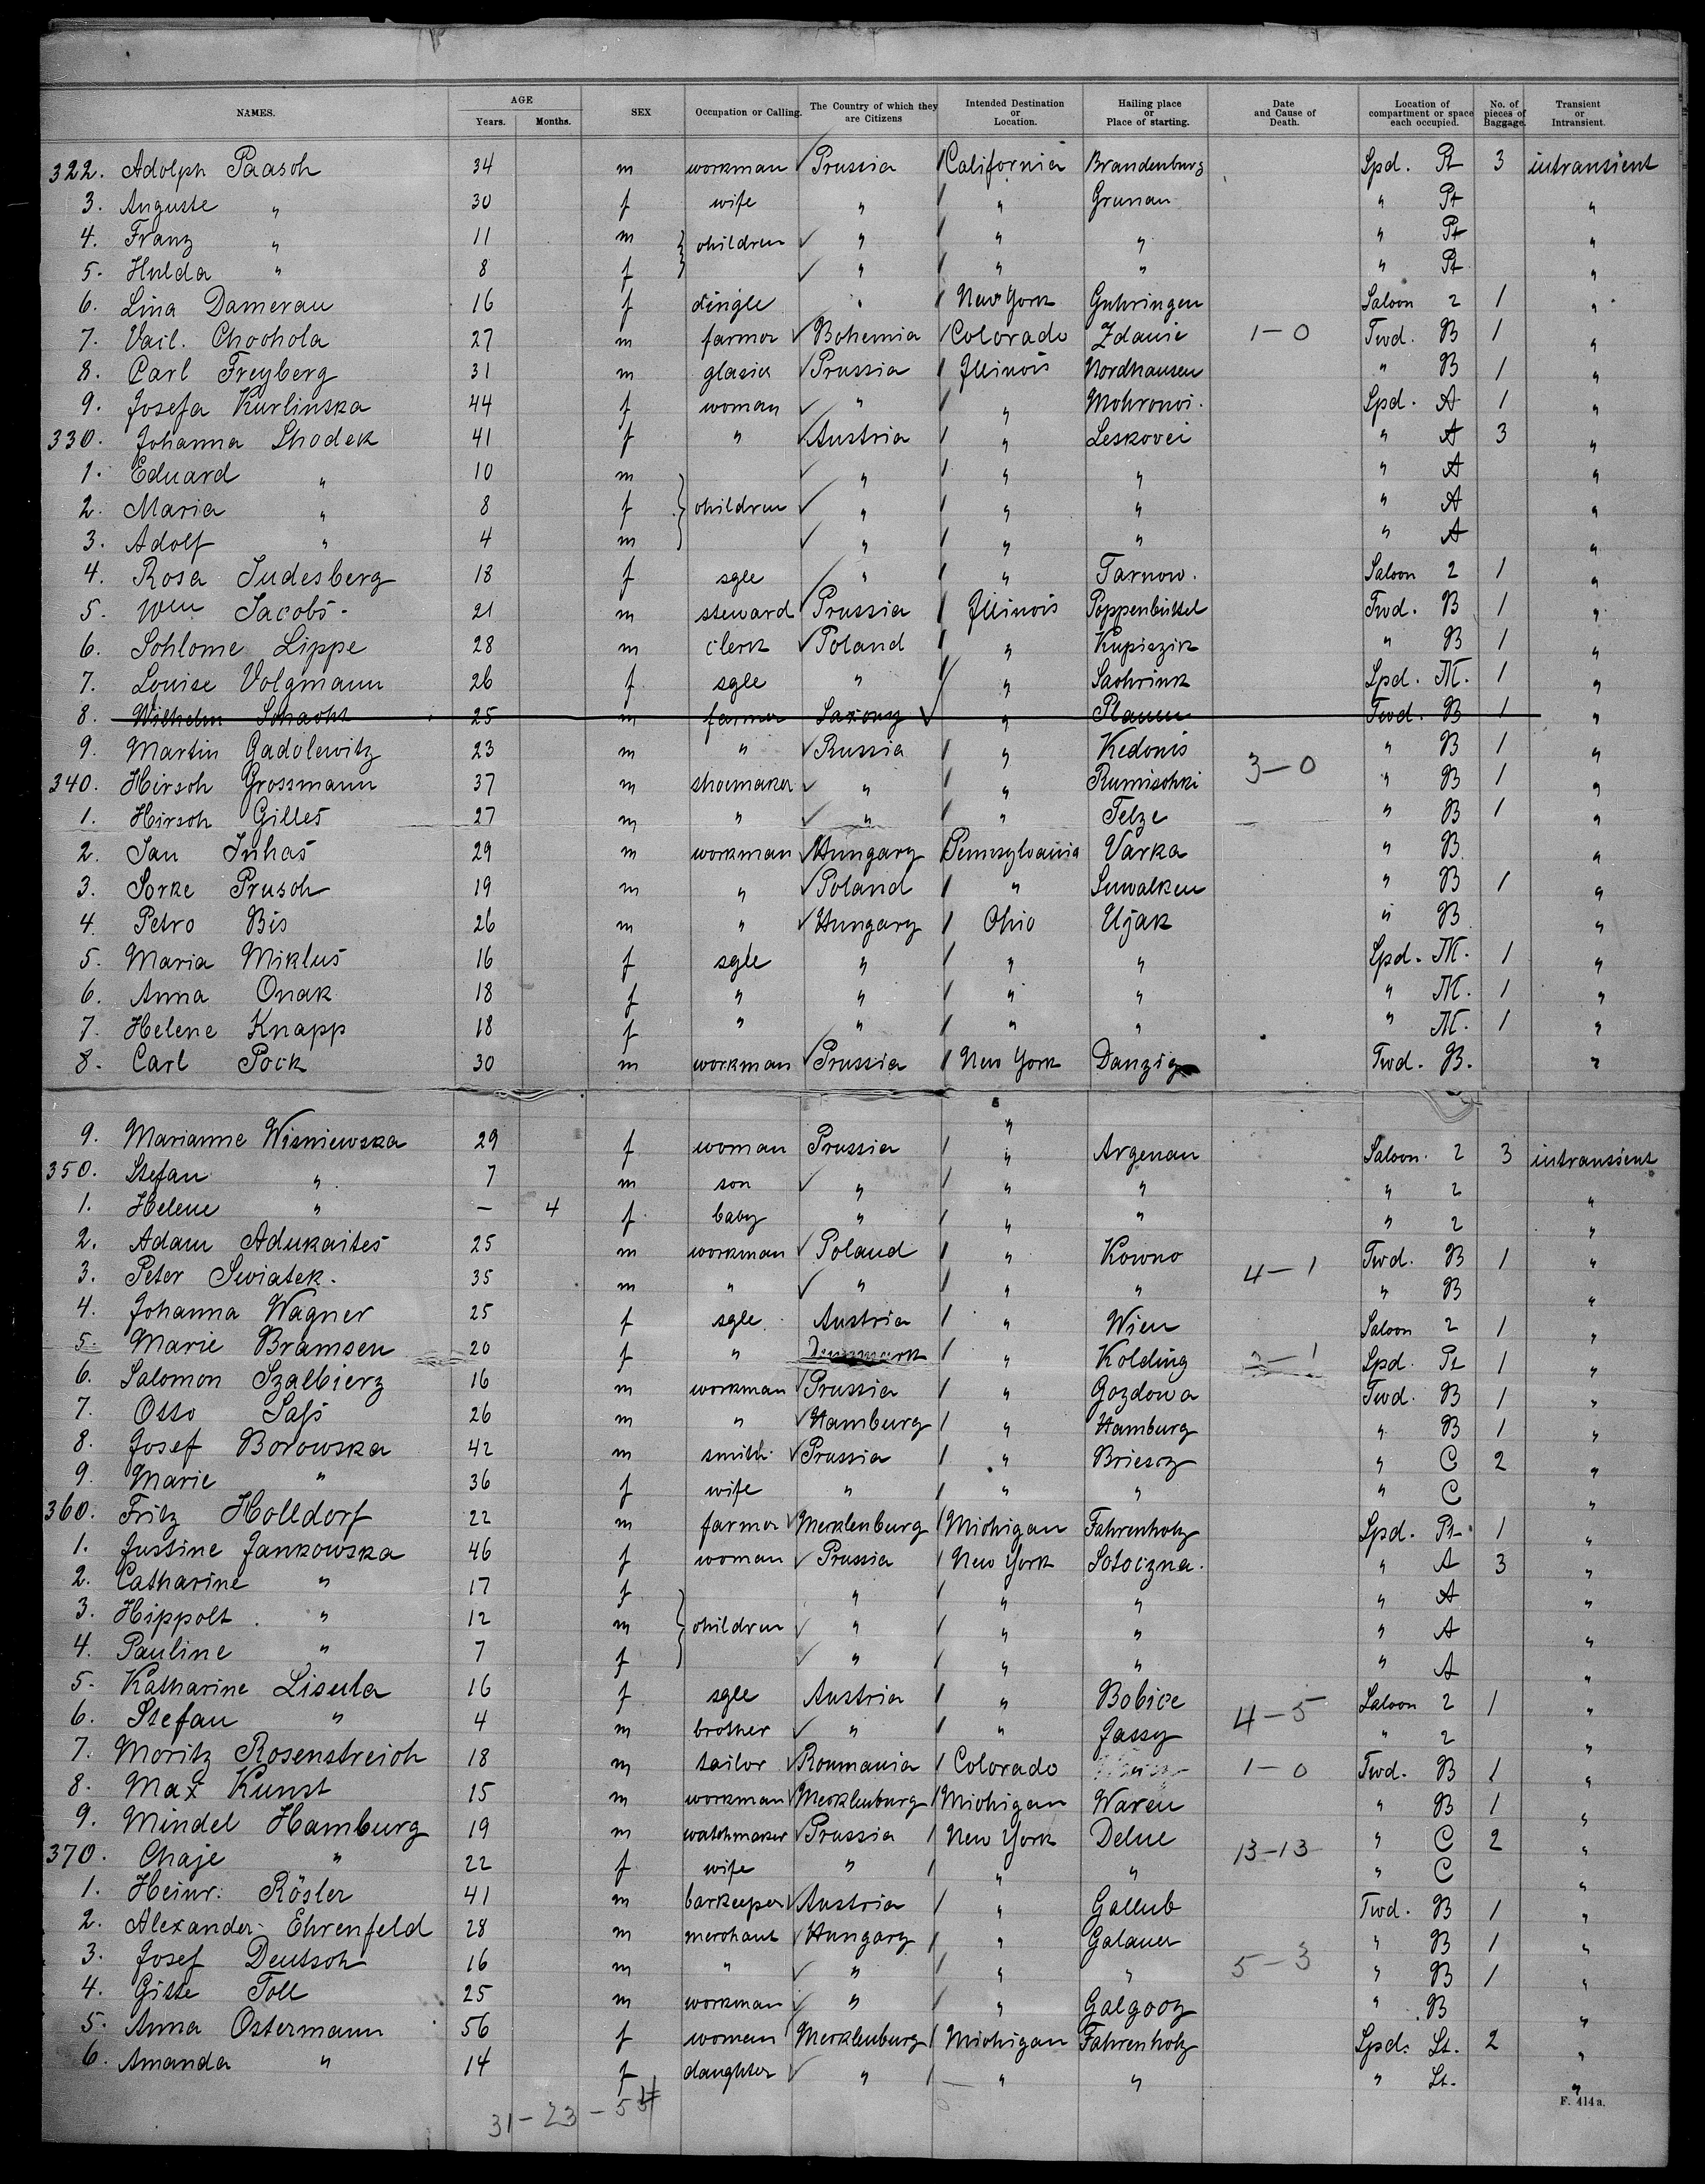 NAMES. AGE Years. Months. SEX Occupation or Calling. The Country of which they are Citizens Intended Destination or Location. Hailing place or Place of starting. Date and Cause of Death. Location of compartment or space each occupied. No. of pieces of Baggage. Transient or Intransient.
322. Adolph Paasch 34 m workman Prussia California Brandenburg Spd. Pt 3 intransient
3. Auguste " 30 f wife " " Grunau " Pt "
4. Franz " 11 m children " " " " Pt "
5. Hulda " 8 f " " " " Pt "
6. Lina Damerau 16 f single " New York Guhringen Saloon 2 1 "
7. Vacl. Chochola 27 m farmer Bohemia Colorado Zdanic 1-0 Twd. B 1 "
8. Carl Freyberg 31 m glasier Prussia Illinois Nordhausen " B 1 "
9. Josefa Kurlinska 44 f woman " " Mohronoi. Spd. A 1 "
330. Johanna Shodek 41 f " Austria " Leskovei " A 3 "
1. Eduard " 10 m " " " " A "
2. Maria " 8 f children " " " " A "
3. Adolf " 4 m " " " " A "
4. Rosa Judesberg 18 f sgle " " Tarnow. Saloon 2 1 "
5. Wm Jacobs. 21 m steward Prussia Illinois Poppenbüttel Twd. B 1 "
6. Schlome Lippe 28 m clerk Poland " Kupiszik " B 1 "
7. Louise Volgmann 26 f sgle " " Sachrink Spd. M. 1 "
8. Wilhelm Schacht 25 m farmer Saxony " Plauen Twd. B 1 "
9. Martin Gadolewitz 23 m " Russia " Kedonis " B 1 "
340. Hirsch Grossmann 37 m shoemaker " " Rumischki 3-0 " B 1 "
1. Hirsch Gilles 27 m " " " Telze " B 1 "
2. Jan Juhas 29 m workman Hungary Pennsylvania Varka " B "
3. Sorke Prusch 19 m " Poland " Suwalken " B 1 "
4. Petro Bis 26 m " Hungary Ohio Ujak " B "
5. Maria Miklus 16 f sgle " " " Spd. M. 1 "
6. Anna Onak 18 f " " " " " M. 1 "
7. Helene Knapp 18 f " " " " " M. 1 "
8. Carl Pock 30 m workman Prussia New York Danzig Twd. B. "
9. Marianne Wisniewska 29 f woman Prussia " Argenau Saloon. 2 3 intransient
350. Stefan " 7 m son " " " " 2 "
1. Helene " — 4 f baby " " " " 2 "
2. Adam Adukaites 25 m workman Poland " Kowno Twd. B 1 "
3. Peter Swiatek. 35 m " " " " 4-1 " B "
4. Johanna Wagner 25 f sgle. Austria " Wien Saloon 2 1 "
5. Marie Bramsen 20 f " Denmark " Kolding Spd. Pt 1 "
6. Salomon Szalbierz 16 m workman Prussia " Gozdowa Twd. B 1 "
7. Otto Saß 26 m " Hamburg " Hamburg " B 1 "
8. Josef Borowska 42 m smith. Prussia " Briesez " C 2 "
9. Marie " 36 f wife " " " " C "
360. Fritz Holldorf 22 m farmer Mecklenburg Michigan Fahrenholz Spd. Pt. 1 "
1. Justine Jankowska 46 f woman Prussia New York Sotoczna. " A 3 "
2. Catharine " 17 f " " " " A "
3. Hippolt. " 12 m children " " " " A "
4. Pauline " 7 f " " " " A "
5. Katharine Lisula 16 f sgle Austria " Bobice Saloon 2 1 "
6. Stefan " 4 m brother " " Jassy 4-5 " 2 "
7. Moritz Rosenstreich 18 m tailor Roumania Colorado 1-0 Twd. B 1 "
8. Max Kunst 15 m workman Mecklenburg Michigan Waren " B 1 "
9. Mindel Hamburg 19 m watchmaker Prussia New York Delue " C 2 "
370. Chaje " 22 f wife " " " 13-13 " C "
1. Heinr. Rösler 41 m barkeeper Austria " Gallub Twd. B 1 "
2. Alexander Ehrenfeld 28 m merchant Hungary " Galauer " B 1 "
3. Josef Deutsch 16 m " " " " 5-3 " B 1 "
4. Gitte Toll 25 m workman " " Galgocz " B "
5. Anna Ostermann 56 f woman Mecklenburg Michigan Fahrenholz Spd. St. 2 "
6. Amanda " 14 f daughter " " " " St. "
31-23-54
F. 414a.